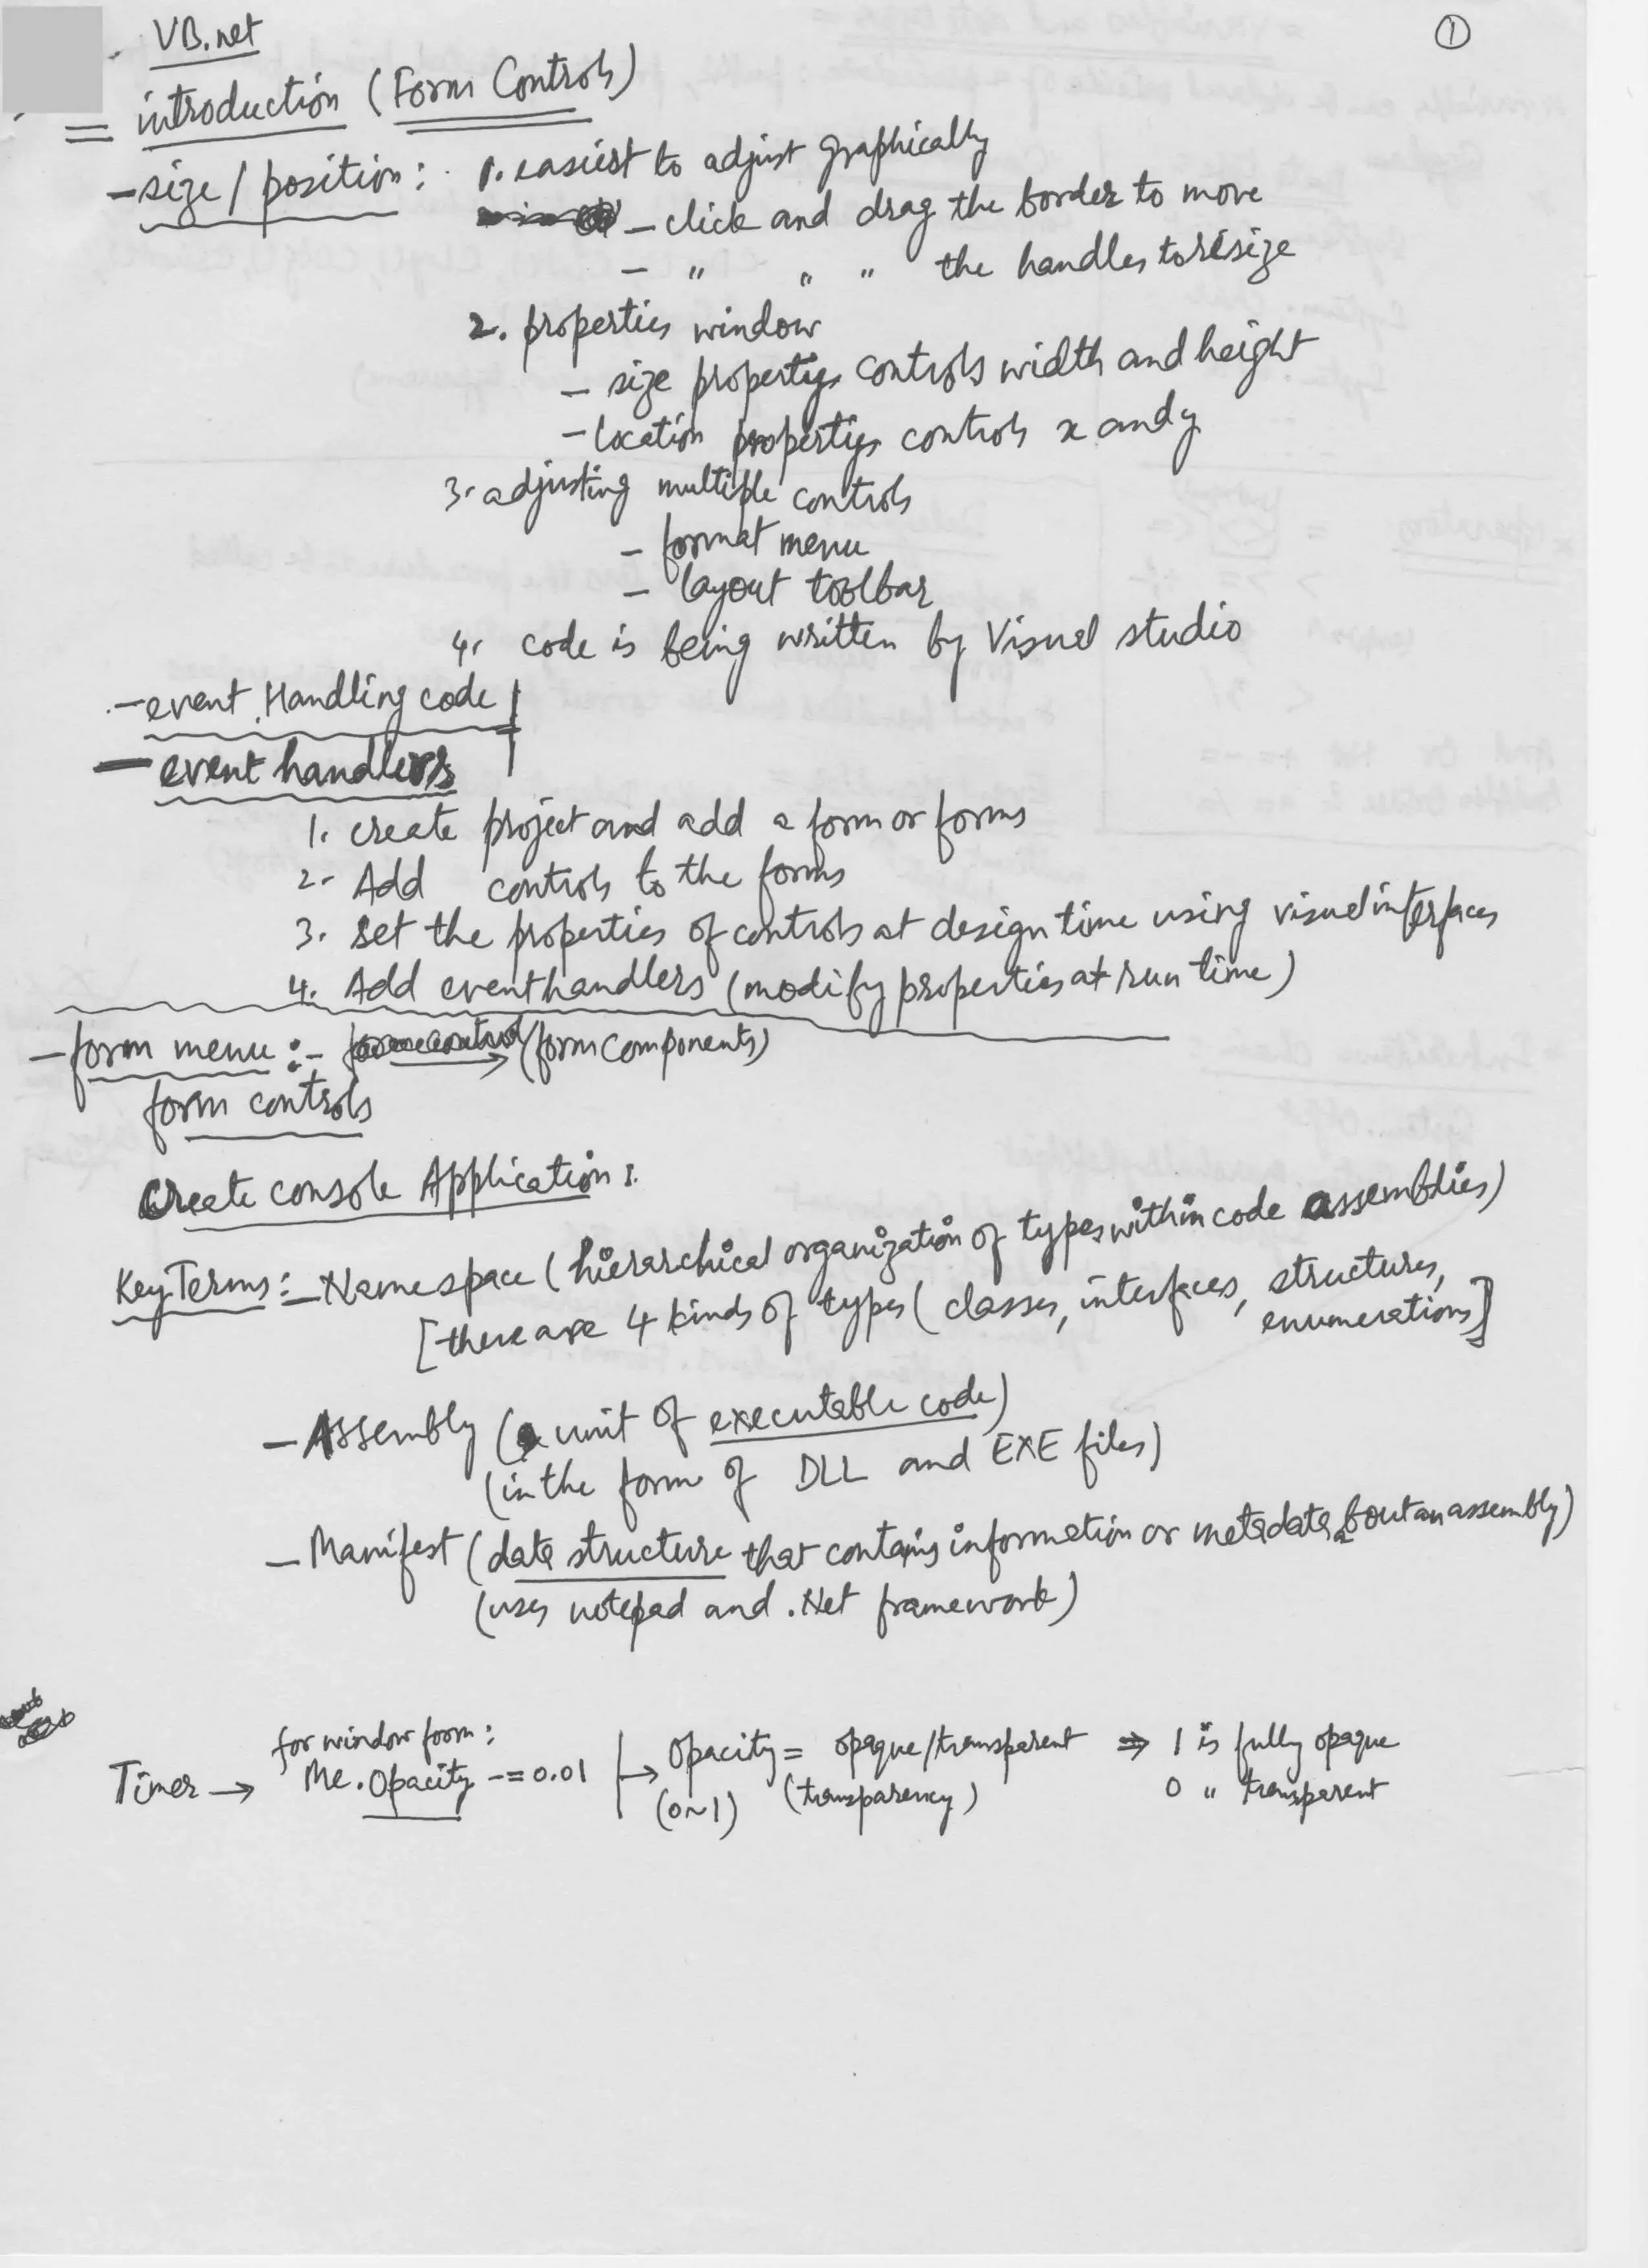 VB.net
①
= introduction (Form Controls)
- size / position : 1. easiest to adjust graphically
- click and drag the border to move
- " " " the handles to resize
2. properties window
- size properties controls width and height
- location properties controls x and y
3. adjusting multiple controls
- format menu
- layout toolbar
4. code is being written by Visual studio
- event Handling code
- event handlers
1. create project and add a form or forms
2. Add controls to the forms
3. set the properties of controls at design time using visual interfaces
4. Add event handlers (modify properties at run time)
- form menu :- form control (form components)
form controls
Create console Application :
Key Terms :- Namespace (hierarchical organization of types within code assemblies)
[there are 4 kinds of types (classes, interfaces, structures,
enumerations]
- Assembly (a unit of executable code)
(in the form of DLL and EXE files)
- Manifest (data structure that contains information or metadata about an assembly)
(uses notepad and .Net framework)
for window form :
Timer → Me.Opacity -= 0.01 → Opacity = opaque/transparent ⇒ 1 is fully opaque
(0~1) (transparency) 0 " transparent